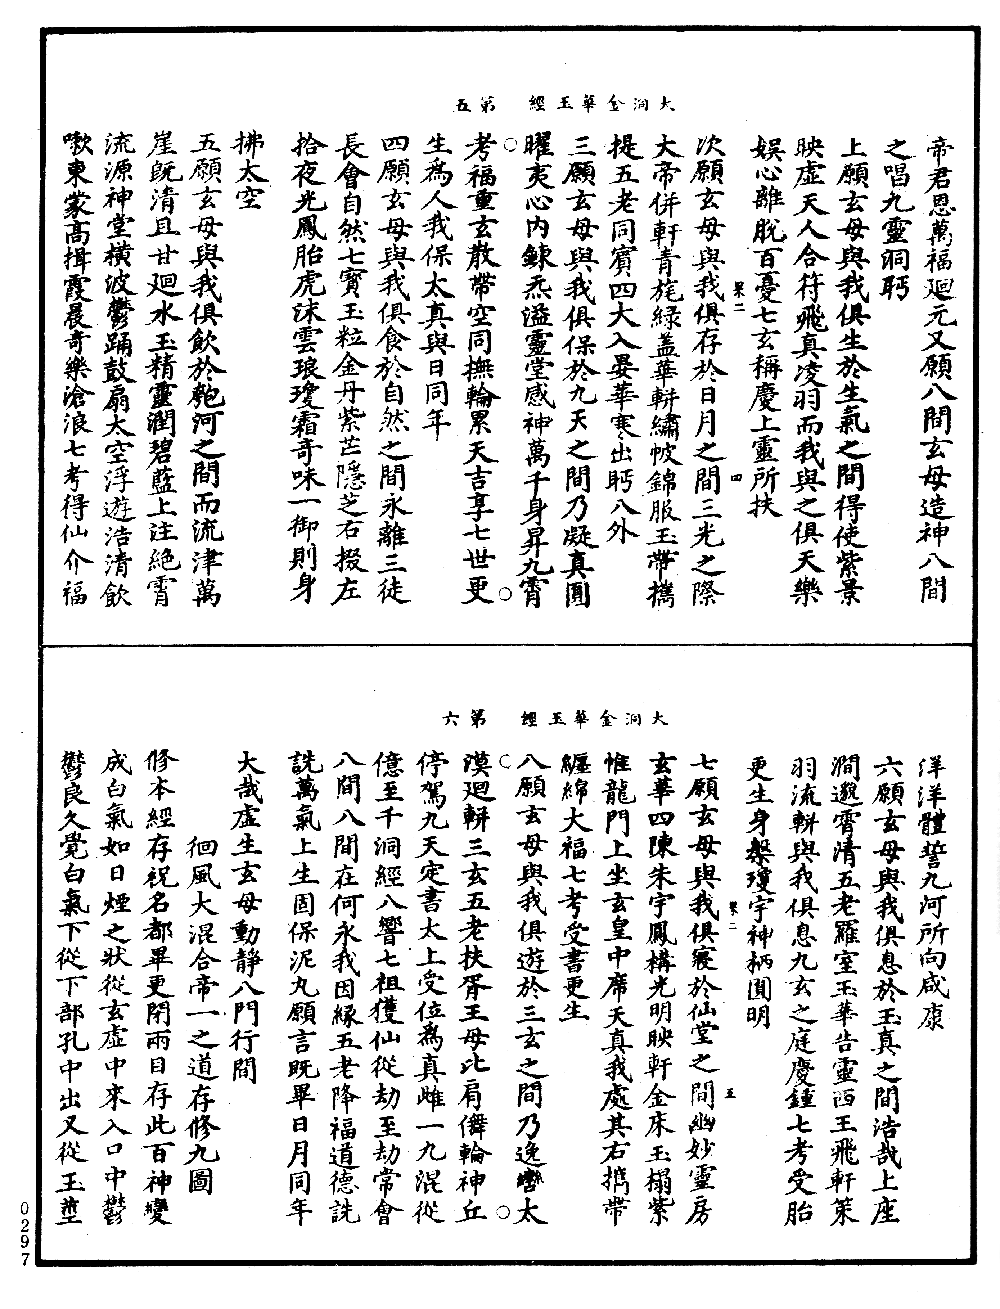 大洞金華玉經　第五
帝君恩萬福廻元又願八間玄母造神八間
之唱九靈洞眄
上願玄母與我俱生於生氣之間得使紫景
映虛天人合符飛真凌羽而我與之俱天樂
娛心離脫百憂七玄稱慶上靈所扶
次願玄母與我俱存於日月之間三光之際
大帝併軒青旄綠蓋華輧繡帔錦服玉帶攜
提五老同賓四大入晏華寒出眄八外
三願玄母與我俱保於九天之間乃凝真圓
曜夷心内鍊炁溢靈堂感神萬千身昇九霄
考福重玄散帶空同撫輪累天吉享七世更
生爲人我保太真與日同年
四願玄母與我俱食於自然之間永離三徒
長會自然七寶玉粒金丹紫芒隱芝右掇左
拾夜光鳳胎虎沫雲琅瓊霜奇味一御則身
拂太空
五願玄母與我俱飲於匏河之間而流津萬
崖旣清且甘廻水玉精靈潤碧藍上注絕霄
流源神堂橫波鬱踊鼓扇太空浮遊浩清飲
嗽東蒙高揖霞晨奇樂滄浪七考得仙介福
大洞金華玉經　第六
洋洋體誓九河所向咸康
六願玄母與我俱息於玉真之間浩哉上座
澗邈霄清五老羅室玉華告靈西王飛軒策
羽流輧與我俱息九玄之庭慶鍾七考受胎
更生身槃瓊宇神柄圓明
七願玄母與我俱寢於仙堂之間幽妙靈房
玄華四陳朱宇鳳構光明映軒金床玉榻紫
帷龍門上坐玄皇中席天真我處其右擕帶
纏綿大福七考受書更生
八願玄母與我俱遊於三玄之間乃逸轡太
漠廻輧三玄五老扶胥王母比肩儛輪神丘
停駕九天定書太上受位爲真雌一九混從
億至千洞經八響七祖獲仙從劫至劫常會
八間八間在何永我因緣五老降福道德詵
詵萬氣上生固保泥丸願言旣畢日月同年
大哉虛生玄母動靜八門行間
徊風大混合帝一之道存修九圖
修本經存祝名都畢更閉兩目存此百神變
成白氣如日煙之狀從玄虛中來入口中鬱
鬱良久覺白氣下從下部孔中出又從玉莖
0297